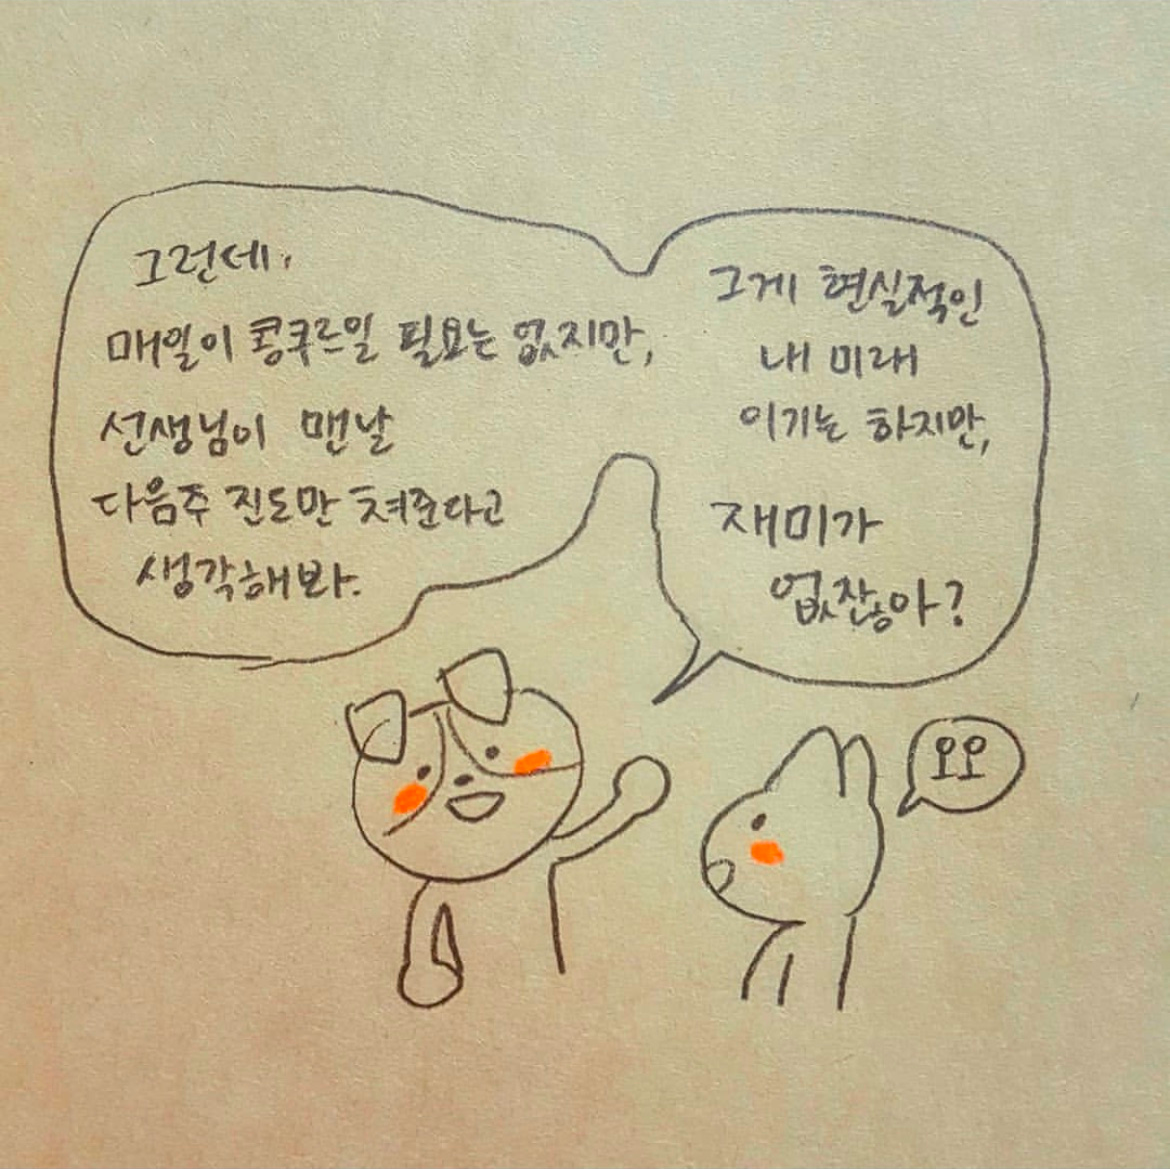 그런데,
매일이 콩쿠르일 필요는 없지만,
선생님이 맨날
다음주 진도만 쳐준다고
생각해봐.
그게 현실적인
내 미래
이기는 하지만,
재미가
없잖아?
오오